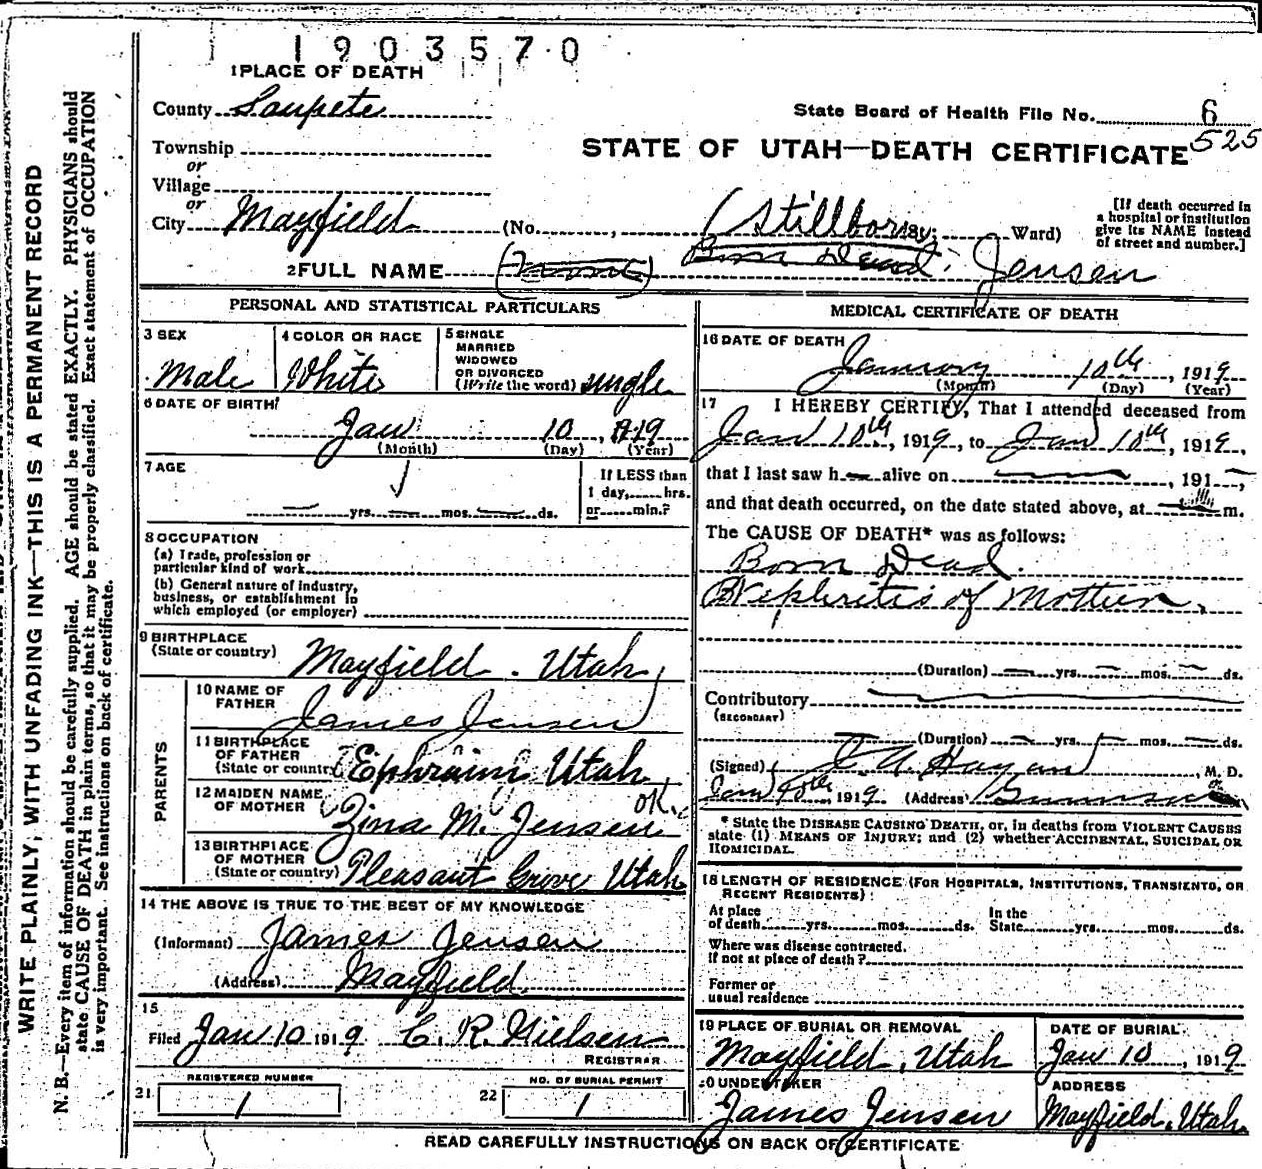 1903570
1 PLACE OF DEATH
County Sanpete
State Board of Health File No. 6
525
STATE OF UTAH—DEATH CERTIFICATE
Township
or
Village
or
City Mayfield (No. , (Stillborn) St.; Ward)
[If death occurred in
a hospital or institution
give its NAME instead
of street and number.]
2 FULL NAME Born Dead. Jensen
PERSONAL AND STATISTICAL PARTICULARS
3 SEX
Male
4 COLOR OR RACE
White
5 SINGLE
MARRIED
WIDOWED
OR DIVORCED
(Write the word) single
6 DATE OF BIRTH
Jan 10, 1919
(Month) (Day) (Year)
7 AGE
yrs. mos. ds.
If LESS than
1 day, hrs.
or min.?
8 OCCUPATION
(a) Trade, profession or
particular kind of work
(b) General nature of industry,
business, or establishment in
which employed (or employer)
9 BIRTHPLACE
(State or country) Mayfield. Utah
PARENTS
10 NAME OF
FATHER James Jensen
11 BIRTHPLACE
OF FATHER
(State or country) Ephraim, Utah
12 MAIDEN NAME
OF MOTHER Zina M. Jensen OK.
13 BIRTHPLACE
OF MOTHER
(State or country) Pleasant Grove Utah
14 THE ABOVE IS TRUE TO THE BEST OF MY KNOWLEDGE
(Informant) James Jensen
(Address) Mayfield.
15
Filed Jan 10 1919 C. R. Nielsen
REGISTRAR
21 REGISTERED NUMBER
1
22 NO. OF BURIAL PERMIT
1
MEDICAL CERTIFICATE OF DEATH
16 DATE OF DEATH
January 10th, 1919
(Month) (Day) (Year)
17 I HEREBY CERTIFY, That I attended deceased from
Jan 10th, 1919, to Jan 10th, 1919,
that I last saw h alive on , 191 ,
and that death occurred, on the date stated above, at m.
The CAUSE OF DEATH* was as follows:
Born Dead.
Nephritis of Mother.
(Duration) yrs. mos. ds.
Contributory
(SECONDARY)
(Duration) yrs. mos. ds.
(Signed) C. A. Hagan, M. D.
Jan 10th, 1919 (Address) Gunnison
* State the DISEASE CAUSING DEATH, or, in deaths from VIOLENT CAUSES
state (1) MEANS OF INJURY; and (2) whether ACCIDENTAL, SUICIDAL OR
HOMICIDAL.
18 LENGTH OF RESIDENCE (FOR HOSPITALS, INSTITUTIONS, TRANSIENTS, OR
RECENT RESIDENTS):
At place
of death yrs. mos. ds.
In the
State yrs. mos. ds.
Where was disease contracted,
if not at place of death?
Former or
usual residence
19 PLACE OF BURIAL OR REMOVAL
Mayfield, Utah
DATE OF BURIAL
Jan 10, 1919
20 UNDERTAKER
James Jensen
ADDRESS
Mayfield, Utah
READ CAREFULLY INSTRUCTIONS ON BACK OF CERTIFICATE
WRITE PLAINLY, WITH UNFADING INK—THIS IS A PERMANENT RECORD
N. B.—Every item of information should be carefully supplied. AGE should be stated EXACTLY. PHYSICIANS should
state CAUSE OF DEATH in plain terms, so that it may be properly classified. Exact statement of OCCUPATION
is very important. See instructions on back of certificate.